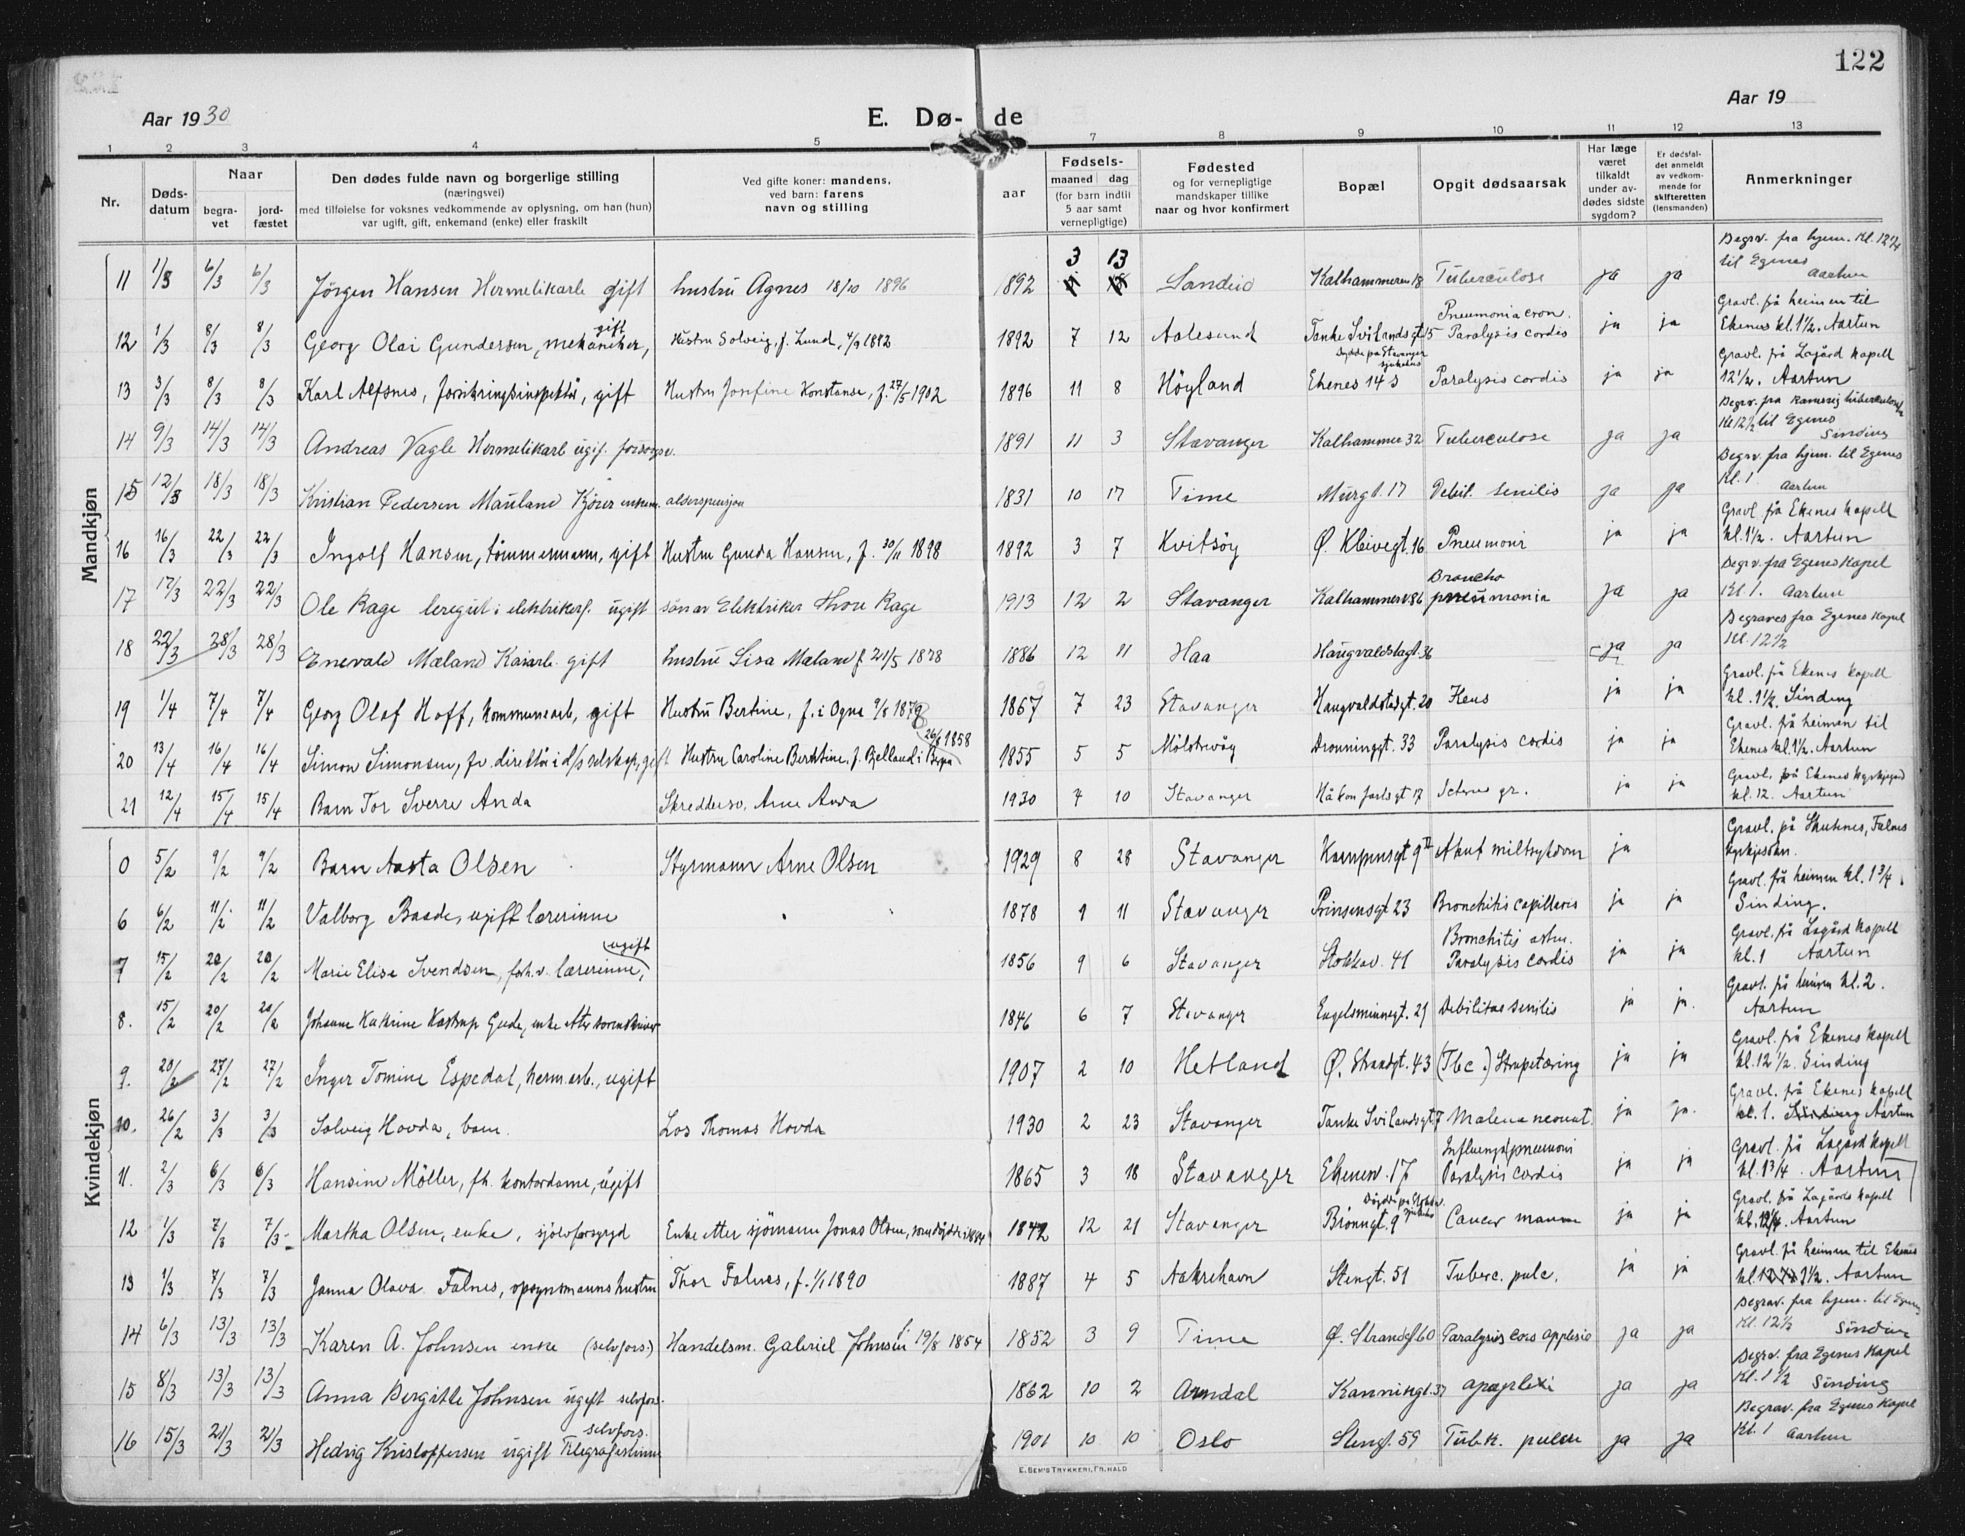 122
Aar 1930
E. Dø- de
Aar 19
1 2 3 4 5 7 8 9 10 11 12 13
Nr.
Døds-datum
Naar
begra-vet
jord-fæstet
Den dødes fulde navn og borgerlige stilling
(næringsvei)
med tilføielse for voksnes vedkommende av oplysning, om han (hun)
var ugift, gift, enkemand (enke) eller fraskilt
Ved gifte koner: mandens,
ved barn: farens
navn og stilling
aar
Fødsels-
maaned dag
(for barn indtil
5 aar samt
vernepligtige)
Fødested
og for vernepligtige
mandskaper tillike
naar og hvor konfirmert
Bopæl
Opgit dødsaarsak
Har læge
været
tilkaldt
under av-
dødes sidste
sygdom?
Er dødsfal-
det anmeldt
av vedkom-
mende for
skifteretten
(lensmanden)
Anmerkninger
Mandkjøn
11 1/3 6/3 6/3 Jörgen Hansen Hermetikarb gift hustru Agnes 18/10 1896 1892 3 13 Sandeid Kalhammeren 18 Tuberculose ja ja Begrv. fra hjem. Kl. 12 1/4 til Egenes Aartun
12 1/3 8/3 8/3 Georg Olai Gundersen, mekaniker, gift Hustru Solveig, f. Lund, 4/9 1892 1892 7 12 Aalesund Tanke Svilandsgt 15 Pneumonia cron. Paralysis cordis ja ja Gravl. frå heimen til Ekenes kl. 1½. Aartun
13 3/3 8/3 8/3 Karl Alfsnes, forsikringsinspektör, gift Hustru Josefine Konstanse, f. 27/5 1902 1896 11 8 Höyland Ekenes 143 Døydde pa Stavanger sjukehus Paralysis cordis ja ja Gravl. frå Lagård kapell 12½. Aartun
14 9/3 14/3 14/3 Andreas Vagle Hermetikarb ugif. forsørgsv. 1891 11 3 Stavanger Kalhammer 32 Tuberculose ja ja Begrv. fra Kl 12½ til Egenes Sinding
15 12/3 18/3 18/3 Kristian Pedersen Mauland Kjører enkem. alderspensjon 1831 10 17 Time Murgt. 17 Debil. senilis ja ja Begrv. fra hjem. til Egenes Kl. 1 Aartun
16 16/3 22/3 22/3 Ingolf Hansen, tømmermann, gift Hustru Gunda Hansen, f. 30/11 1898 1892 3 7 Kvitsöy Ø. Kleivegt. 16 Pneumoni ja ja Gravl. frå Ekenes kapell kl. 1½. Aartun
17 17/3 22/3 22/3 Ole Rage leregut i elektrikerf. ugift sön av Elektriker Thore Rage 1913 12 2 Stavanger Kalhammerv 86 Broncho pneumonia ja ja Begrv. fra Egenes Kapel Kl. 1. Aartun
18 22/3 28/3 28/3 Enevald Mæland Kaiarb. gift hustru Lisa Mæland f 21/5 1878 1886 12 11 Haa Haugvaldstagt. 36 ja ja Begraves fra Egenes Kapel Kl. 12½
19 1/4 7/4 7/4 Georg Olaf Hoff, kommunearb, gift Hustru Bertine, f. i Ogna 9/8 1879 1867 7 23 Stavanger Haugvaldstadgt. 20 ja ja Gravl. frå Ekenes kapell kl. 1½ Sinding
20 13/4 16/4 16/4 Simon Simonsen, fv. direktör i d/s selskap, gift Hustru Caroline Berntine, f. Bjelland i 26/6 1858 1855 5 5 Dronninggt. 33 Paralysis cordis ja ja Gravl. frå heimen til Ekenes kl. 1½. Aartun
21 12/4 15/4 15/4 Barn Tor Sverre Anda Skreddersv. Arne Anda 1930 4 10 Stavanger Håkon Jarlsgt 17 Icterus gr. ja ja Gravl. på Ekenes kyrkjegard kl. 12. Aartun
Kvindekjøn
0 5/2 9/2 9/2 Barn Aasta Olsen Styrmann Arne Olsen 1929 8 28 Stavanger Kampensgt 9 II Akut miltsykdom ja Gravl. på Skutenes, Falnes kyrkjegard.
6 6/2 11/2 11/2 Valborg Baade, ugift lærerinne 1878 9 11 Stavanger Prinsensgt 23 Bronchitis capillaris ja ja Gravl. frå heimen kl. 1 3/4. Sinding.
7 15/2 20/2 20/2 Marie Elise Svendsen, forh.v. lærerinne, ugift 1856 9 6 Stavanger Stokkav. 41 Bronchitis astm. Paralysis cordis ja ja Gravl. frå Lagård kapell kl. 1 Aartun
8. 15/2 20/2 20/2 Johanne Katrine Kastrup Gude, enke etter sorenskriver 1846 6 7 Stavanger Engelsminnegt. 29 Debilitas senilis ja ja. Gravl. frå heimen kl. 2. Aartun
9. 20/2 27/2 27/2 Inger Tomine Espedal, herm.arb., ugift 1907 2 10 Hetland Ø. Strandgt. 43 (Tbc.) Strupetæring ja ja Gravl. frå Ekenes kapell kl. 12½. Sinding
10. 26/2 3/3 3/3 Solveig Hovda, barn. Los Thomas Hovda 1930 2 23 Stavanger Tanke Svilandsgt 7 Malena neonat. ja ja. Gravl. frå Ekenes kapell kl. 1. Sinding Aartun
11. 2/3 6/3 6/3 Hansine Möller, fh. kontordame, ugift 1865 3 18 Stavanger Ekenesv. 17 Influensa/pneumoni Paralysis cordis ja ja Gravl. frå Lagård kapell kl. 1 3/4. Aartun
12 1/3 7/3 7/3 Martha Olsen, enke, sjölvforsyrgd Enke etter sjömann Jonas Olsen, som döydde i 1884 1842 12 21 Stavanger Brönngt. 9 Cancer mamm ja ja Gravl. frå Lagårds kapell kl. 12¼. Aartun
13 1/3 7/3 7/3 Janna Olava Falnes, opsynsmannshustru Thor Falnes, f. 1/1 1890 1887 4 5 Aakrehavn Stengt. 51 Tuberc. pulc. ja ja Gravl. frå heimen til Ekenes kl. 1½. Aartun
14 6/3 13/3 13/3 Karen A. Johnsen enke (selvfors.) Handelsm. Gabriel Johnsen f. 19/8 1854 1852 3 9 Time Ø. Strandgt 60 Paralysis cors applesio ja ja Begrav. fra hjem. til Egenes Kl. 12½ Sinding
15 8/3 13/3 13/3 Anna Bergitte Johnsen ugift selvfors. 1862 10 2 Arndal Kanningt. 37 apoplexi ja ja Begrv. fra Egenes Kapel Kl. 1½ Sinding
16 15/3 21/3 21/3 Hedvig Kristoffersen ugift Telegrafistinne selvfors. 1901 10 10 Oslo Stengt. 59 Tubk. pulm ja ja Begrav. fra Egenes Kapel Kl. 1 Aartun
E. SEM'S TRYKKERI, FR.HALD